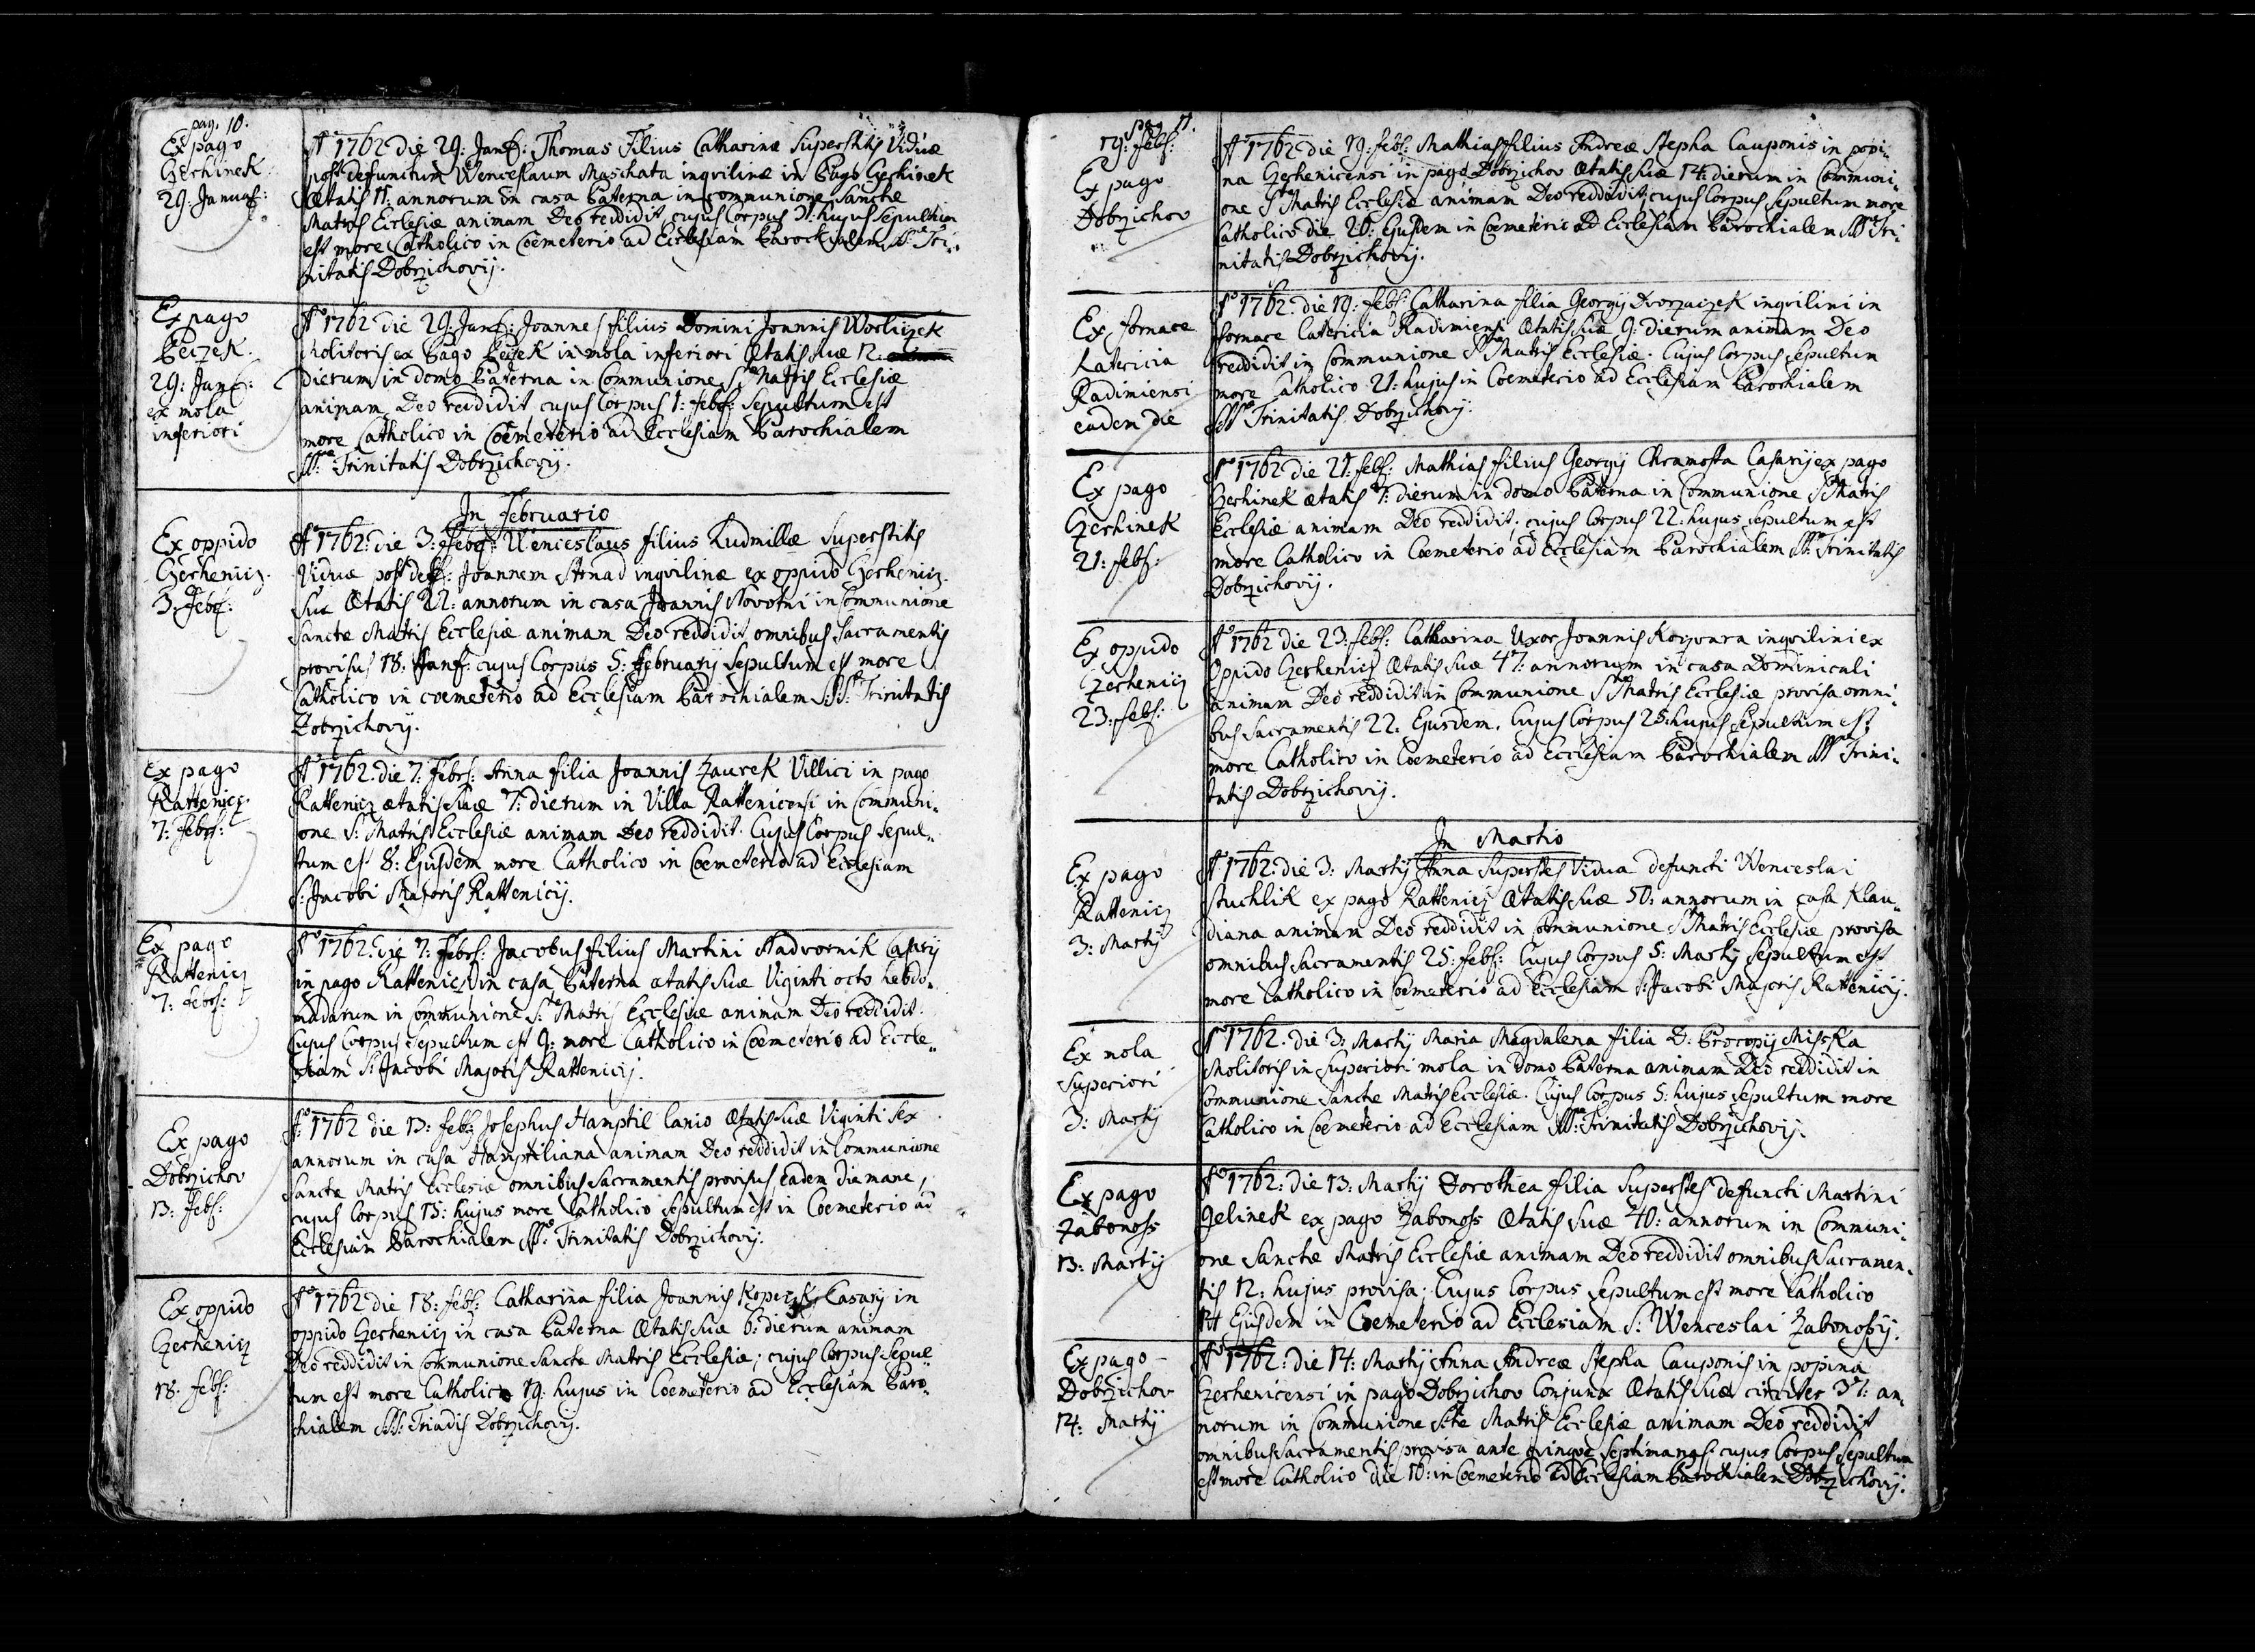 pag. 10.
Ex pago
Gerhinek
29: Januar:
Ao 1762 die 29: Janu: Thomas Filius Catharinæ Superstitis Viduæ
post defunctum Wenceslaum Maschata inqvilinæ in Pago Gerhinek
Ætatis 11: annorum in casa Paterna in communione Sanctæ
Matris Ecclesiæ animam Deo reddidit, cujus Corpus 31: hujus Sepultum
est more Catholico in Coemeterio ad Ecclesiam Parochialem SS: Tri-
nitatis Dobrzichovij.
Ex pago
Peczek.
29: Janu:
ex mola
inferiori
Ao 1762 die 29: Janu: Joannes filius Domini Joannis Worliczek
Molitoris ex Pago Peczek in mola inferiori Ætatis Suæ 12:
dierum in domo Paterna in Communione Stæ Matris Ecclesiæ
animam Deo reddidit cujus Corpus 1: febr: Sepultum est
more Catholico in Coemeterio ad Ecclesiam Parochialem
SS:mæ Trinitatis Dobrzichovij.
In Februario
Ex oppido
Gerhenicz.
3: Febr:
Ao 1762: die 3: Febr: Wenceslaus filius Ludmillæ Superstitis
Viduæ post def: Joannem Strnad inqvilinæ ex oppido Gerhenicz.
Suæ Ætatis 22: annorum in casa Joannis Novotni in Communione
Sanctæ Matris Ecclesiæ animam Deo reddidit omnibus Sacramentis
provisus 18: Janu: cujus Corpus 5: Februarij Sepultum est more
Catholico in coemeterio ad Ecclesiam Parochialem S:S: Trinitatis
Dobrzichovij.
Ex pago
Rattenicz.
7: Febr:
Ao 1762: die 7: Febr: Anna filia Joannis Zaurek Villici in pago
Rattenicz ætatis Suæ 7: dierum in Villa Rattenicensi in Communi-
one S: Matris Ecclesiæ animam Deo reddidit. Cujus Corpus Sepul-
tum est 8: Ejusdem more Catholico in Coemeterio ad Ecclesiam
S: Jacobi Majoris Rattenicij.
Ex pago
Rattenicz
7: Febr:
Ao 1762: die 7: Febr: Jacobus filius Martini Nadvornik Casarij
in pago Rattenicz in casa Paterna ætatis Suæ Viginti octo hebdo-
madarum in Communione S:tæ Matris Ecclesiæ animam Deo reddidit.
Cujus Corpus Sepultum est 9: more Catholico in Coemeterio ad Eccle-
siam S: Jacobi Majoris Rattenicij.
Ex pago
Dobrzichov
13: Febr:
Ao 1762 die 13: febr: Josephus Hamptil lanio Ætatis Suæ Viginti Sex
annorum in casa Hamptiliana animam Deo reddidit in Communione
Sanctæ Matris Ecclesiæ omnibus Sacramentis provisus eadem dia mane,
cujus Corpus 15: hujus more Catholico Sepultum est in Coemeterio ad
Ecclesiam Parochialem SS: Trinitatis Dobrzichovij.
Ex oppido
Gerhenicz
18: Febr:
Ao 1762 die 18: febr: Catharina filia Joannis Kopeczk Casarij in
oppido Gerhenicz in casa Paterna Ætatis Suæ 6: dierum animam
Deo reddidit in Communione Sanctæ Matris Ecclesiæ; cujus Corpus Sepul-
tum est more Catholico 19: hujus in Coemeterio ad Ecclesiam Paro-
chialem SS: Triadis Dobrzichovij.
pag 11.
19: Febr:
Ex pago
Dobrzichov
Ao 1762 die 19: febr: Mathias filius Andreæ Stepha Cauponis in popi-
na Gerhenicensi in pago Dobrzichov Ætatis Suæ 14: dierum in Communi-
one Stæ Matris Ecclesiæ animam Deo reddidit; cujus Corpus Sepultum more
Catholico die 20: Ejusdem in Coemeterio ad Ecclesiam Parochialem SS Tri-
nitatis Dobrzichovij.
Ex fornace
Latericia
Radimiensi
eadem die
Ao 1762: die 19: febr: Catharina filia Georgij Dvorzaczek inqvilini in
fornace Latericia Radimiensi Ætatis Suæ 9: dierum animam Deo
reddidit in Communione Stæ Matris Ecclesiæ. Cujus Corpus Sepultum
more Catholico 21: hujus in Coemeterio ad Ecclesiam Parochialem
SSæ Trinitatis Dobrzichovij.
Ex pago
Gerhinek
21: febr:
Ao 1762 die 21: febr: Mathias filius Georgij Chramosta Casarij ex pago
Gerhinek ætatis 7: dierum in domo Paterna in Communione Stæ Matris
Ecclesiæ animam Deo reddidit; cujus Corpus 22: hujus Sepultum est
more Catholico in Coemeterio ad Ecclesiam Parochialem SS: Trinitatis
Dobrzichovij.
Ex oppido
Gerhenicz
23: febr:
Ao 1762 die 23: febr: Catharina Uxor Joannis Koczoura inqvilini ex
Oppido Gerhenicz Ætatis Suæ 47: annorum in casa Dominicali
animam Deo reddidit in Communione Stæ Matris Ecclesiæ provisa omni-
bus Sacramentis 22: Ejusdem. Cujus Corpus 25: hujus Sepultum est
more Catholico in Coemeterio ad Ecclesiam Parochialem SS Trini-
tatis Dobrzichovij.
In Martio
Ex pago
Rattenicz
3: Martij
Ao 1762: die 3: Martij Anna Superstes Vidua defuncti Wenceslai
Stuchlik ex pago Rattenicz Ætatis Suæ 50: annorum in casa Klau-
diana animam Deo reddidit in Communione Stæ Matris Ecclesiæ provisa
omnibus Sacramentis 25: febr: Cujus Corpus 5: Martij Sepultum est
more Catholico in Coemeterio ad Ecclesiam S: Jacobi Majoris Rattenicij.
Ex mola
Superiori
3: Martij
Ao 1762. die 3: Martij Maria Magdalena filia D: Procopij Misska
Molitoris in Superiori mola in domo Paterna animam Deo reddidit in
Communione Sanctæ Matris Ecclesiæ. Cujus Corpus 5: hujus Sepultum more
Catholico in Coemeterio ad Ecclesiam SS: Trinitatis Dobrzichovij.
Ex pago
Zabonoss
13: Martij
Ao 1762: die 13: Martij Dorothea filia Superstes defuncti Martini
Gelinek ex pago Zabonoss Ætatis Suæ 40: annorum in Communi-
one Sanctæ Matris Ecclesiæ animam Deo reddidit omnibus Sacramen-
tis 12: hujus provisa; Cujus Corpus Sepultum est more Catholico
Ejusdem in Coemeterio ad Ecclesiam S: Wenceslai Zabonossij.
Ex pago
Dobrzichov
14: Martij
Ao 1762: die 14: Martij Anna Andreæ Stepha Cauponis in popina
Gerhenicensi in pago Dobrzichov Conjunx Ætatis Suæ circiter 37: an-
norum in Communione S:tæ Matris Ecclesiæ animam Deo reddidit
omnibus Sacramentis provisa ante qvinqve Septimanas: cujus Corpus Sepultum
est more Catholico die 16: in Coemeterio ad Ecclesiam Parochialem Dobrzichovij.